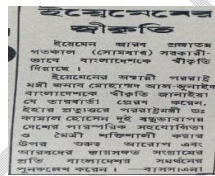 ইয়েমেনের
স্বীকৃতি
ইয়েমেন আরব প্রজাতন্ত্র
গতকাল (সোমবার) সরকারী-
ভাবে বাংলাদেশকে স্বীকৃতি
দিয়াছে ।
ইয়েমেনের অস্থায়ী পররাষ্ট্র
মন্ত্রী জনাব মোহাম্মদ আল-জুনাইদ
বাংলাদেশকে স্বীকৃতি জানাইয়া
যে তারবার্তা প্রেরণ করেন,
ইহার প্রত্যুত্তরে পররাষ্ট্রমন্ত্রী ডঃ
কামাল হোসেন দুই বন্ধুভাবাপন্ন
দেশের পারস্পরিক সহযোগিতা
ও মৈত্রী শক্তিশালী করার
উপর গুরুত্ব আরোপ এবং
আরবদের ন্যায়সঙ্গত সংগ্রামের
প্রতি বাংলাদেশের সমর্থনের
পুনরুল্লেখ করেন । —বাসস/এনা